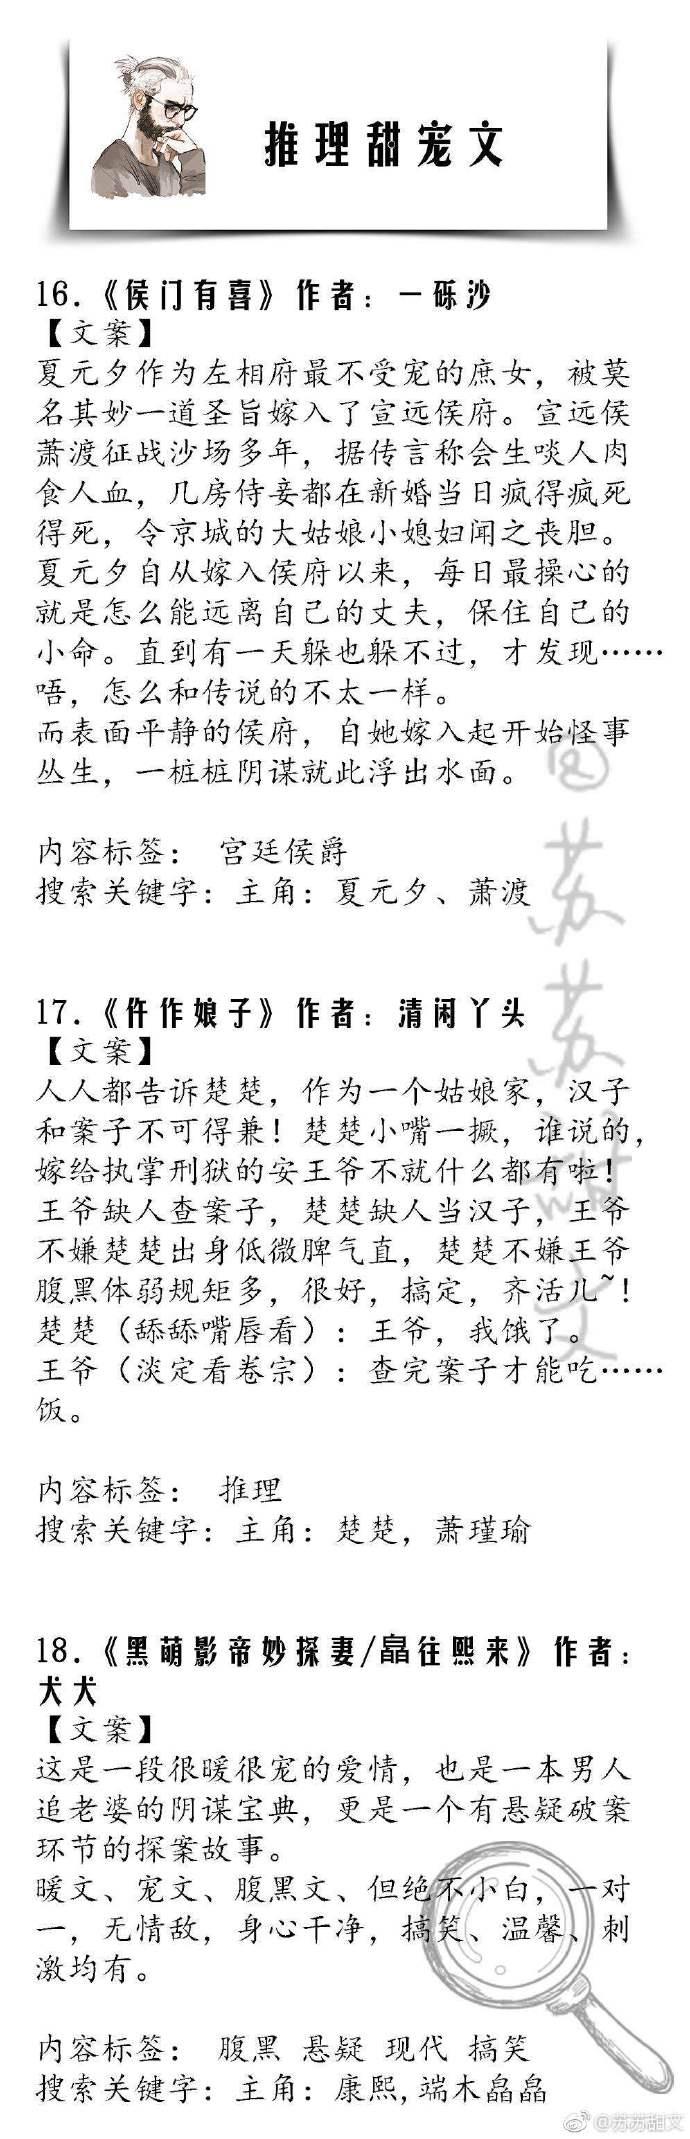 推理甜宠文
16.《侯门有喜》作者：一砾沙
【文案】
夏元夕作为左相府最不受宠的庶女，被莫
名其妙一道圣旨嫁入了宣远侯府。宣远侯
萧渡征战沙场多年，据传言称会生啖人肉
食人血，几房侍妾都在新婚当日疯得疯死
得死，令京城的大姑娘小媳妇闻之丧胆。
夏元夕自从嫁入侯府以来，每日最操心的
就是怎么能远离自己的丈夫，保住自己的
小命。直到有一天躲也躲不过，才发现……
唔，怎么和传说的不太一样。
而表面平静的侯府，自她嫁入起开始怪事
丛生，一桩桩阴谋就此浮出水面。
内容标签： 宫廷侯爵
搜索关键字：主角：夏元夕、萧渡
17.《仵作娘子》作者：清闲丫头
【文案】
人人都告诉楚楚，作为一个姑娘家，汉子
和案子不可得兼！楚楚小嘴一撅，谁说的，
嫁给执掌刑狱的安王爷不就什么都有啦！
王爷缺人查案子，楚楚缺人当汉子，王爷
不嫌楚楚出身低微脾气直，楚楚不嫌王爷
腹黑体弱规矩多，很好，搞定，齐活儿~！
楚楚（舔舔嘴唇看）：王爷，我饿了。
王爷（淡定看卷宗）：查完案子才能吃……
饭。
内容标签： 推理
搜索关键字：主角：楚楚，萧瑾瑜
18.《黑萌影帝妙探妻/皛往熙来》作者：
犬犬
【文案】
这是一段很暖很宠的爱情，也是一本男人
追老婆的阴谋宝典，更是一个有悬疑破案
环节的探案故事。
暖文、宠文、腹黑文、但绝不小白，一对
一，无情敌，身心干净，搞笑、温馨、刺
激均有。
内容标签： 腹黑 悬疑 现代 搞笑
搜索关键字：主角：康熙,端木皛皛
@苏苏甜文
@苏苏甜文